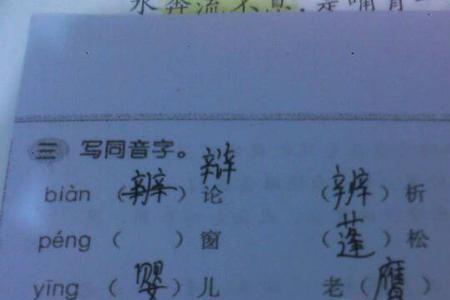 水奔流不息，是哺育一
三 写同音字。
辩
biàn （辨）论 （辨）析
péng （ ）窗 （蓬）松
yīng （婴）儿 老（膺）